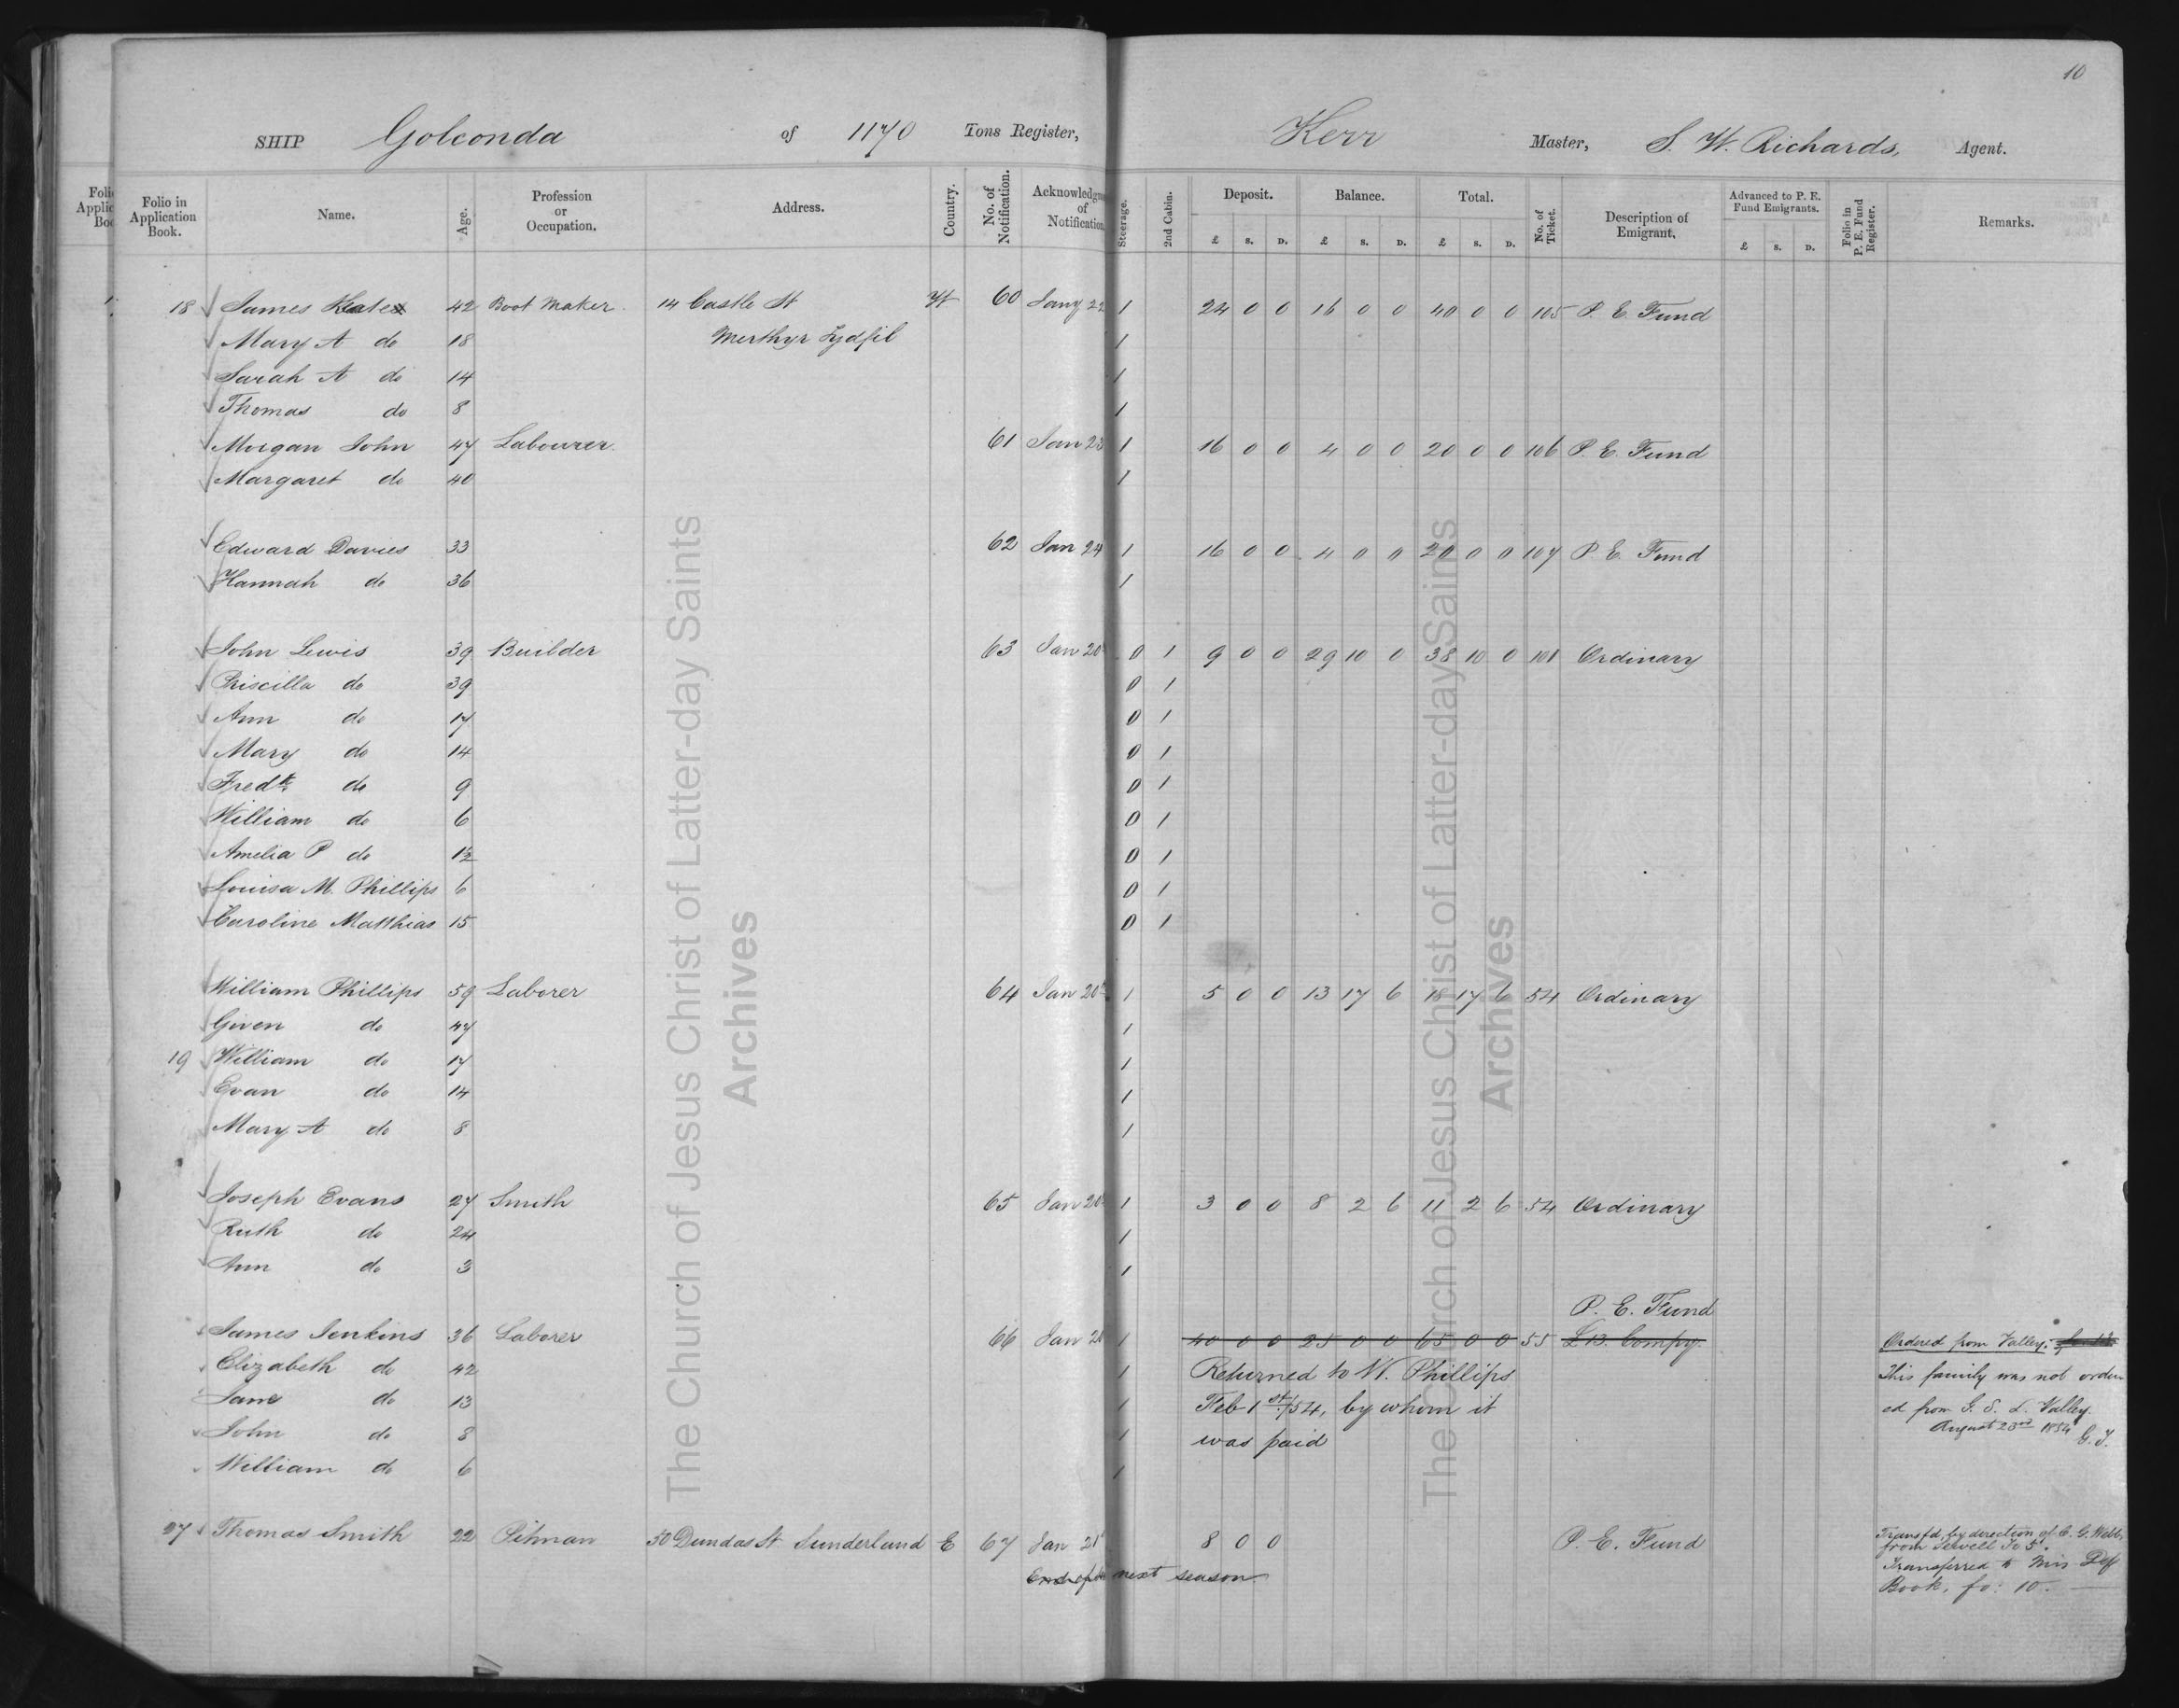 10
SHIP Golconda of 1170 Tons Register, Kerr Master, S. W. Richards, Agent.
Folio in Application Book. Name. Age. Profession or Occupation. Address. Country. No. of Notification. Acknowledgment of Notification. Steerage. 2nd Cabin. Deposit. £ s. D. Balance. £ s. D. Total. £ s. D. No. of Ticket. Description of Emigrant. Advanced to P. E. Fund Emigrants. £ s. D. Folio in P. E. Fund Register. Remarks.
18 James Keate 42 Boot Maker. 14 Castle St W 60 Jany 22 1 24 0 0 16 0 0 40 0 0 105 P. E. Fund
Mary A do 18 Merthyr Tydfil 1
Sarah A do 14 1
Thomas do 8 1
Morgan John 47 Labourer. 61 Jan 23 1 16 0 0 4 0 0 20 0 0 106 P. E. Fund
Margaret do 40 1
Edward Davies 33 62 Jan 24 1 16 0 0 4 0 0 20 0 0 107 P. E. Fund
Hannah do 36 1
John Lewis 39 Builder 63 Jan 20 0 1 9 0 0 29 10 0 38 10 0 101 Ordinary
Priscilla do 39 0 1
Ann do 17 0 1
Mary do 14 0 1
Fredk do 9 0 1
William do 6 0 1
Amelia P do 1½ 0 1
Louisa M. Phillips 6 0 1
Caroline Matthias 15 0 1
William Phillips 59 Laborer 64 Jan 20 1 5 0 0 13 17 6 18 17 6 54 Ordinary
Given do 47 1
19 William do 17 1
Evan do 14 1
Mary A do 8 1
Joseph Evans 27 Smith 65 Jan 20 1 3 0 0 8 2 6 11 2 6 54 Ordinary
Ruth do 24 1
Ann do 3 1
P. E. Fund
James Jenkins 36 Laborer 66 Jan 20 1 40 0 0 25 0 0 65 0 0 55 £13. Compy. Ordered from Valley.
Elizabeth do 42 1 Returned to W. Phillips This family was not order
Jane do 13 1 Feb 1st/54, by whom it ed from G. S. L. Valley.
John do 8 1 was paid August 23rd 1854 G. T.
William do 6 1
27 Thomas Smith 22 Pitman 50 Dundas St Sunderland E 67 Jan 21 8 0 0 P. E. Fund Transfd by direction of C. G. Webb,
from Sewell To 5.
next season. Transferred to Mis Dep
Book, fo: 10.
The Church of Jesus Christ of Latter-day Saints
Archives
The Church of Jesus Christ of Latter-day Saints
Archives